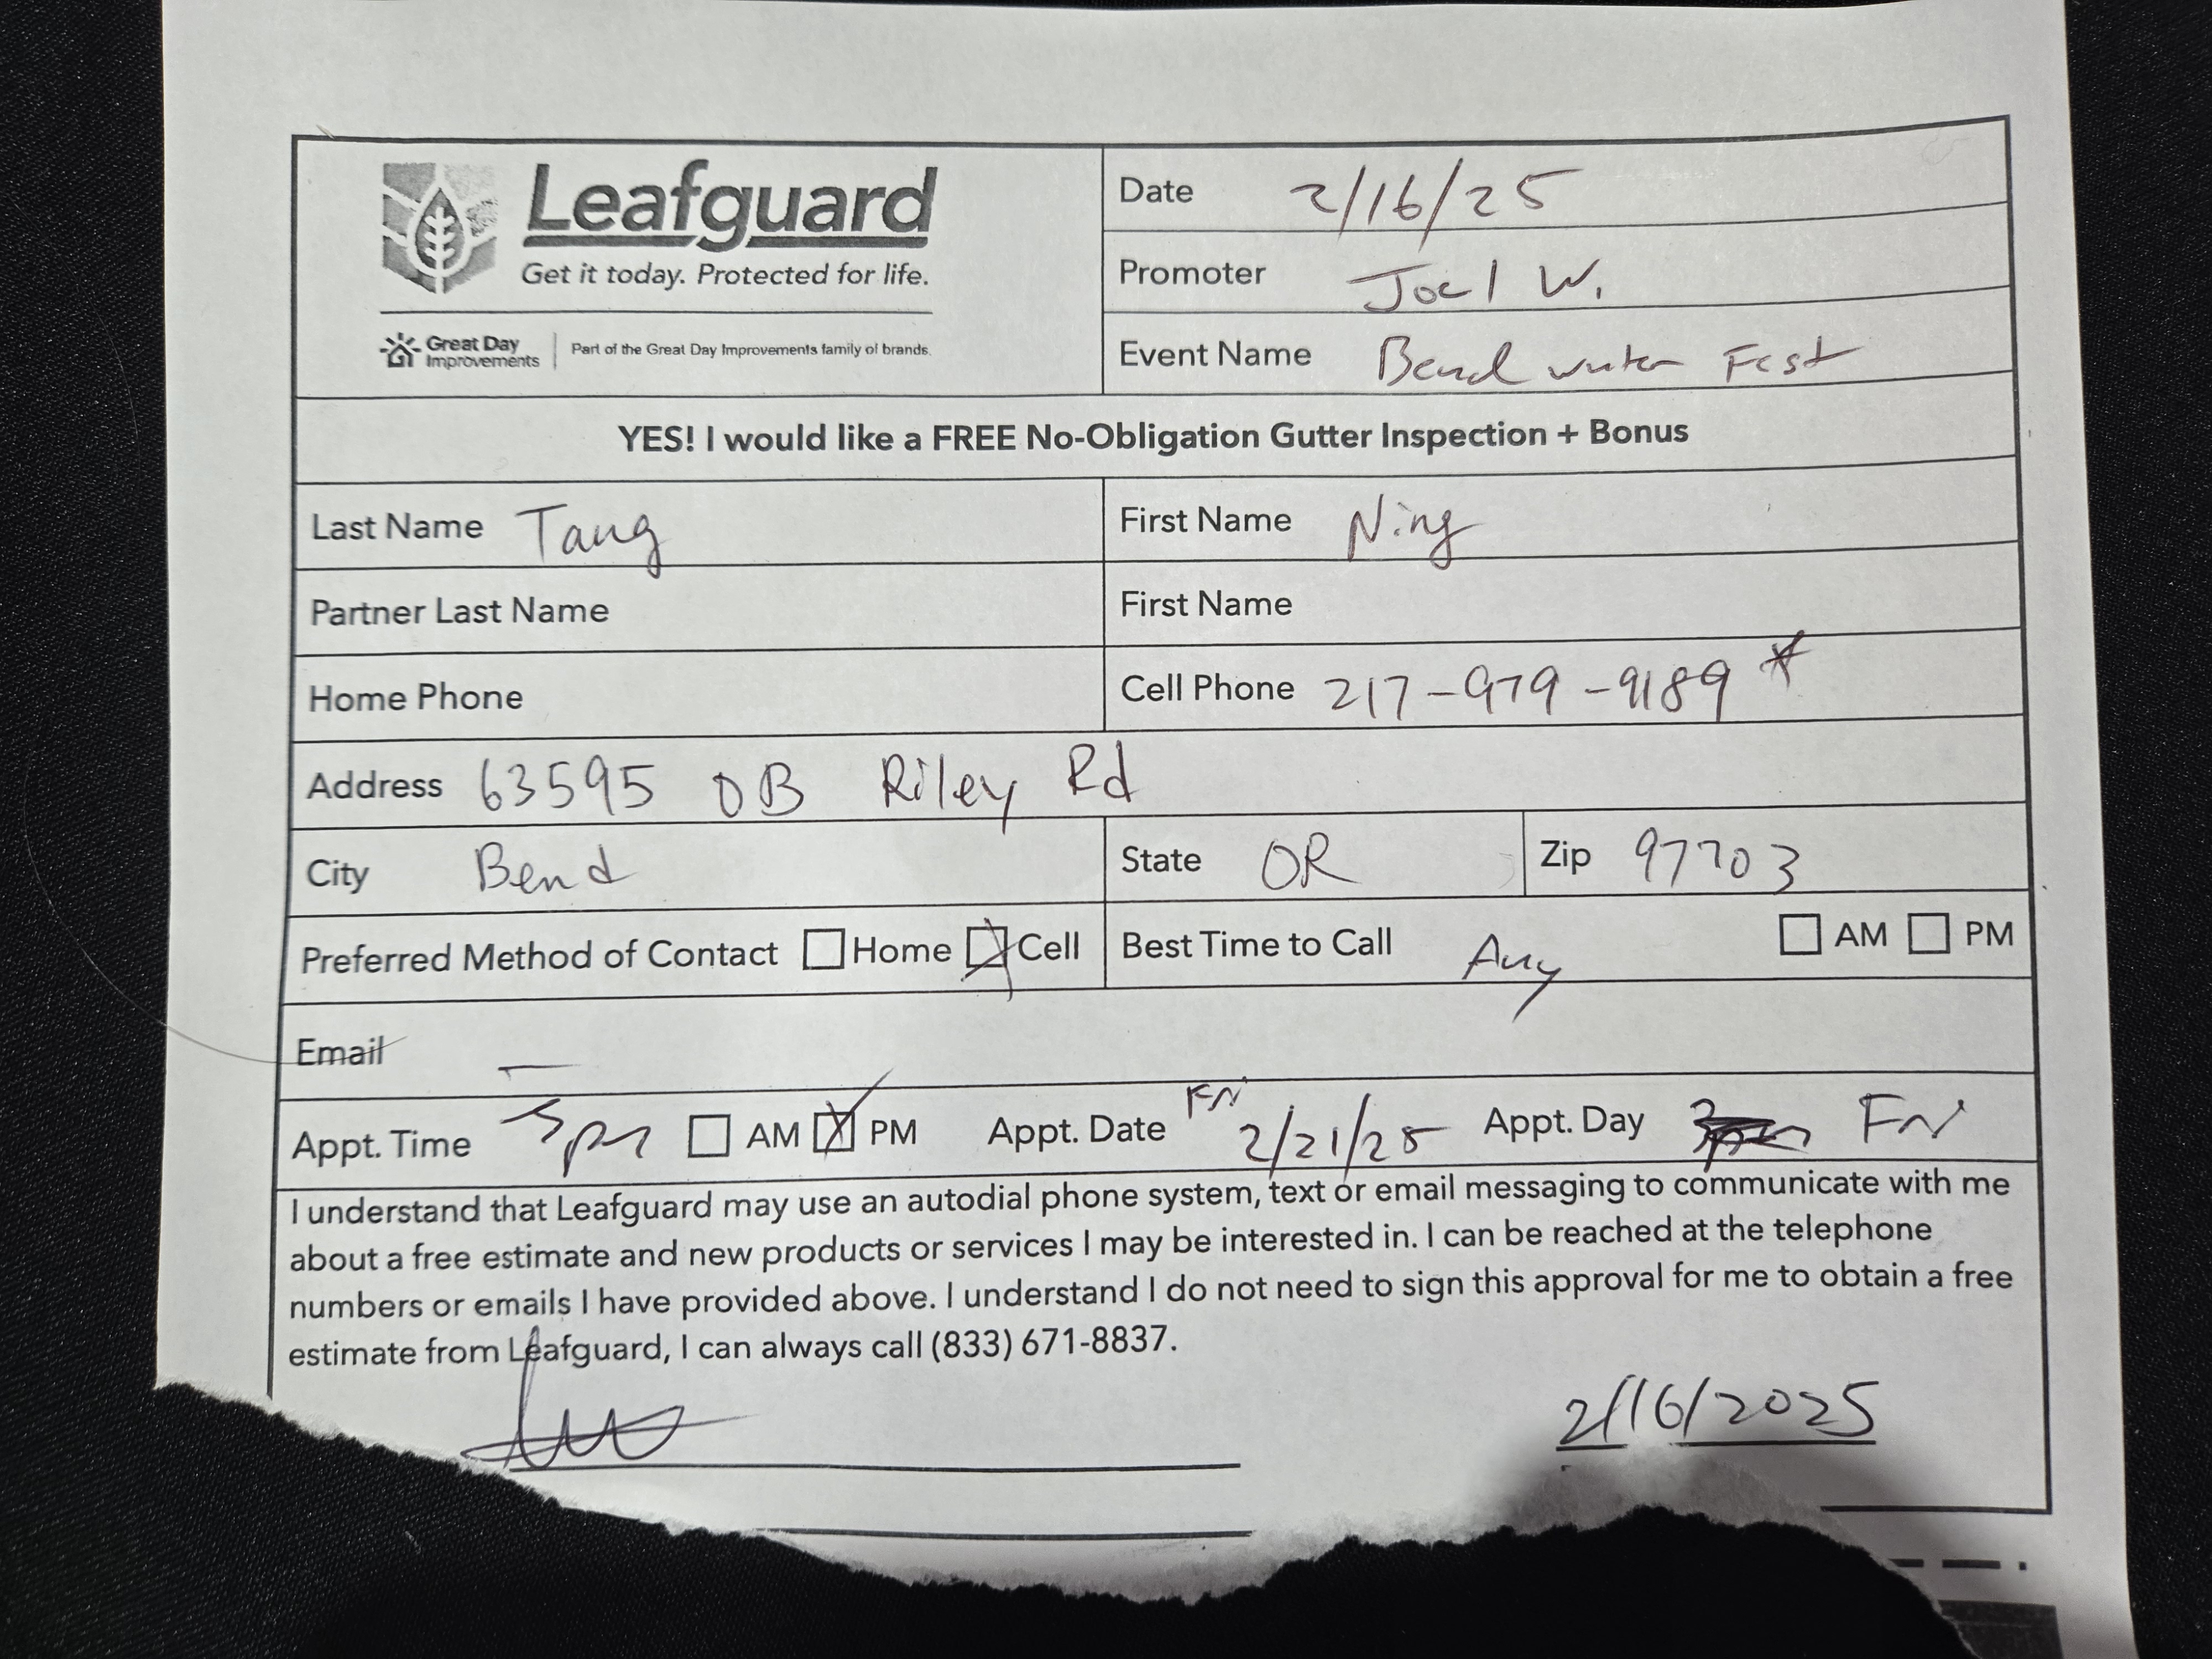 Leafguard
Get it today. Protected for life.
Great Day Improvements | Part of the Great Day Improvements family of brands.
Date 2/16/25
Promoter Joel W.
Event Name Bend winter Fest
YES! I would like a FREE No-Obligation Gutter Inspection + Bonus
Last Name Tang First Name Ning
Partner Last Name First Name
Home Phone Cell Phone 217-979-9189 *
Address 63595 OB Riley Rd
City Bend State OR Zip 97703
Preferred Method of Contact Home Cell Best Time to Call Any AM PM
Email
Appt. Time 3pm AM PM Appt. Date Fri 2/21/25 Appt. Day Fri
I understand that Leafguard may use an autodial phone system, text or email messaging to communicate with me
about a free estimate and new products or services I may be interested in. I can be reached at the telephone
numbers or emails I have provided above. I understand I do not need to sign this approval for me to obtain a free
estimate from Leafguard, I can always call (833) 671-8837.
2/16/2025